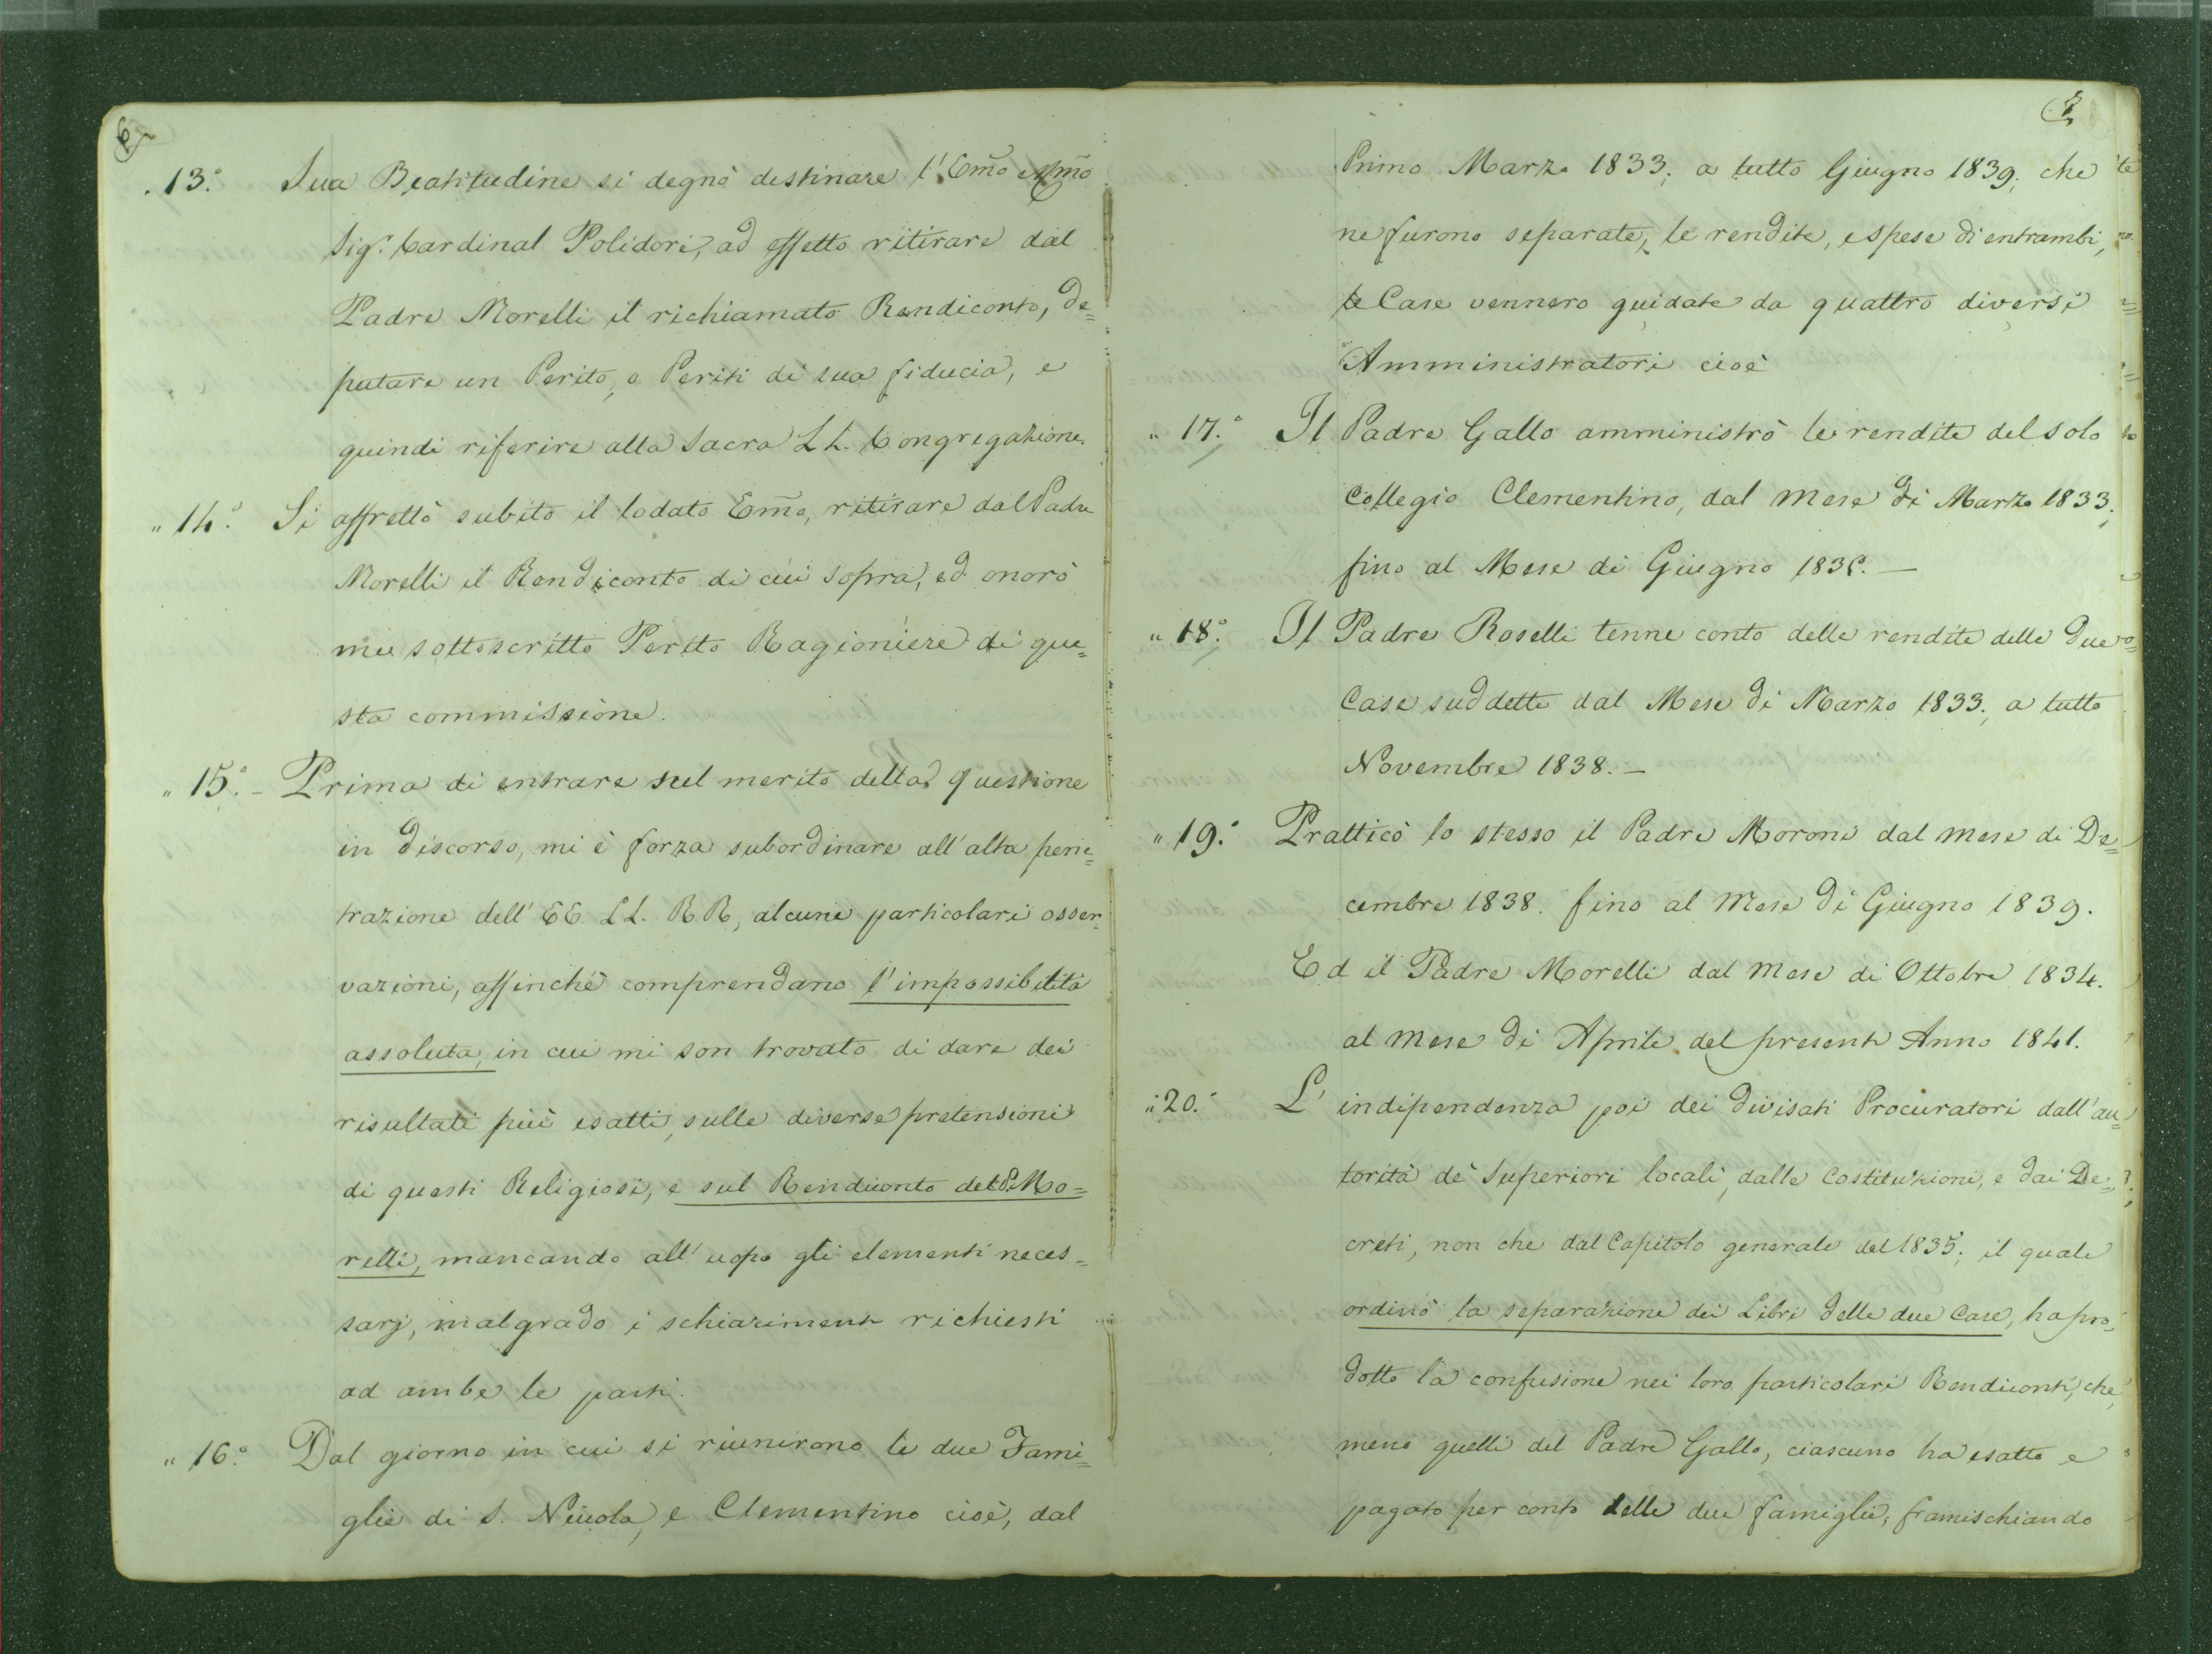 6
" 13.° Sua Beatitudine si degnò destinare l'Em̃o e Rm̃o
Sig.r Cardinal Polidori, ad effetto ritirare dal
Padre Morelli il richiamato Rendiconto, de=
putare un Perito, o Periti di sua fiducia, e
quindi riferire alla Sacra LL. Congregazione.
" 14.° Si affrettò subito il lodato Em̃o, ritirare dal Padre
Morelli il Rendiconto di cui sopra, ed onorò
me sottoscritto Perito Ragioniere di que=
sta commissione.
" 15.° - Prima di entrare sul merito della questione
in discorso, mi è forza subordinare all'alta pene=
trazione dell'EE. LL. RR, alcune particolari osser=
vazioni, affinchè comprendano l'impossibilità
assoluta, in cui mi son trovato di dare dei
risultati più esatti, sulle diverse pretensioni
di questi Religiosi, e sul Rendiconto del P. Mo=
relli, mancando all'uopo gli elementi neces=
sarj, malgrado i schiarimenti richiesti
ad ambe le parti.
" 16.° Dal giorno in cui si riunirono le due Fami=
glie di S. Nicola, e Clementino cioè, dal
7
Primo Marzo 1833; a tutto Giugno 1839; che
ne furono separate, le rendite, e spese di entrambi,
le Case vennero guidate da quattro diversi
Amministratori cioè
" 17.° Il Padre Gallo amministrò le rendite del solo
Collegio Clementino, dal Mese di Marzo 1833;
fino al Mese di Giugno
" 18.° Il Padre Roselli tenne conto delle rendite delle due
Case suddette dal Mese di Marzo 1833., a tutto
Novembre 1838. –
" 19.° Pratticò lo stesso il Padre Moroni dal mese di De=
cembre 1838. fino al Mese di Giugno 1839.
Ed il Padre Morelli dal Mese di Ottobre 1834.
al Mese di Aprile del presente Anno 1841.
" 20.° L'indipendenza poi dei divisati Procuratori dall'au=
torità de' Superiori locali, dalle Costituzioni, e dai De=
creti, non che dal Capitolo generale del 1835; il quale
ordinò la separazione dei Libri delle due Case, ha pro=
dotto la confusione nei loro particolari Rendiconti, che,
meno quelli del Padre Gallo, ciascuno ha esatto e
pagato per conto delle due famiglie, framischiando